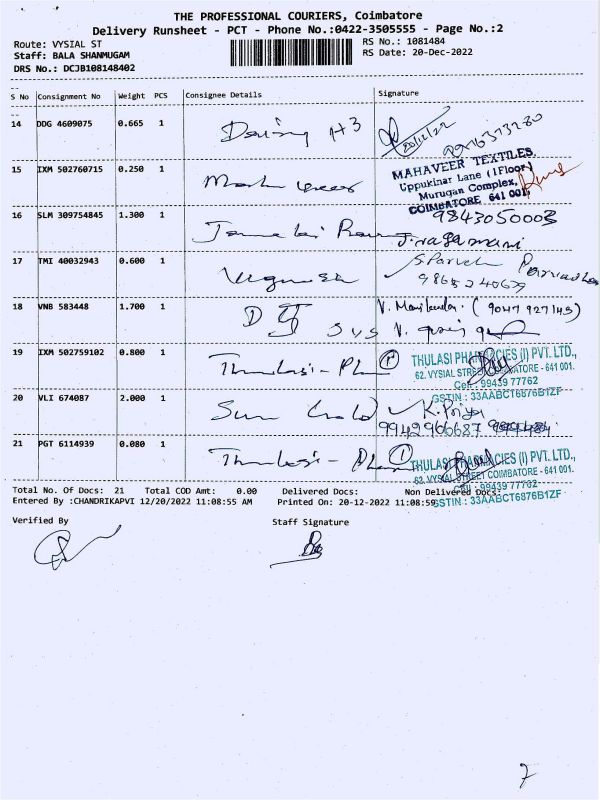 THE PROFESSIONAL COURIERS, Coimbatore
Delivery Runsheet - PCT - Phone No.:0422-3505555 - Page No.:2
Route: VYSIAL ST
RS No.: 1081484
Staff: BALA SHANMUGAM
RS Date: 20-Dec-2022
DRS No.: DCJB108148402
S No Consignment No Weight PCS Consignee Details Signature
14 DDG 4609075 0.665 1
20/12/22
15 IXM 502760715 0.250 1
MAHAVEER TEXTILES,
Uppukinar Lane (I Floor)
Murugan Complex,
COIMBATORE 641 001.
16 SLM 309754845 1.300 1
9843050003
17 TMI 40032943 0.600 1
18 VNB 583448 1.700 1
V. Manikandan (9047 927145)
19 IXM 502759102 0.800 1 Thulasi - Pha
THULASI PHARMACIES (I) PVT. LTD.,
62. VYSIAL STREET COIMBATORE - 641 001.
Cell : 99439 77762
GSTIN : 33AABCT6876B1ZF
20 VLI 674087 2.000 1 K. Priya
9942966687
21 PGT 6114939 0.080 1 Thulasi - Pha
THULASI PHARMACIES (I) PVT. LTD.,
62. VYSIAL STREET COIMBATORE - 641 001.
Cell : 99439 77762
GSTIN : 33AABCT6876B1ZF
Total No. Of Docs: 21 Total COD Amt: 0.00 Delivered Docs: Non Delivered Docs:
Entered By :CHANDRIKAPVI 12/20/2022 11:08:55 AM Printed On: 20-12-2022 11:08:59
Verified By Staff Signature